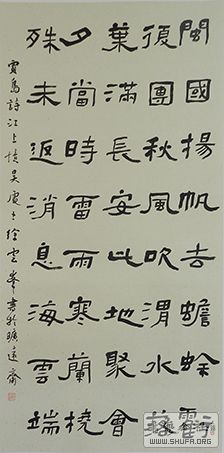 閩國揚帆去蟾蜍虧
復團秋風吹渭水落
葉滿長安此地聚會
夕當時雷雨寒蘭橈
殊未返消息海雲端
賈島詩江上憶吳處士徐雲峯書於曠遠齋
WWW.SHUFA.ORG